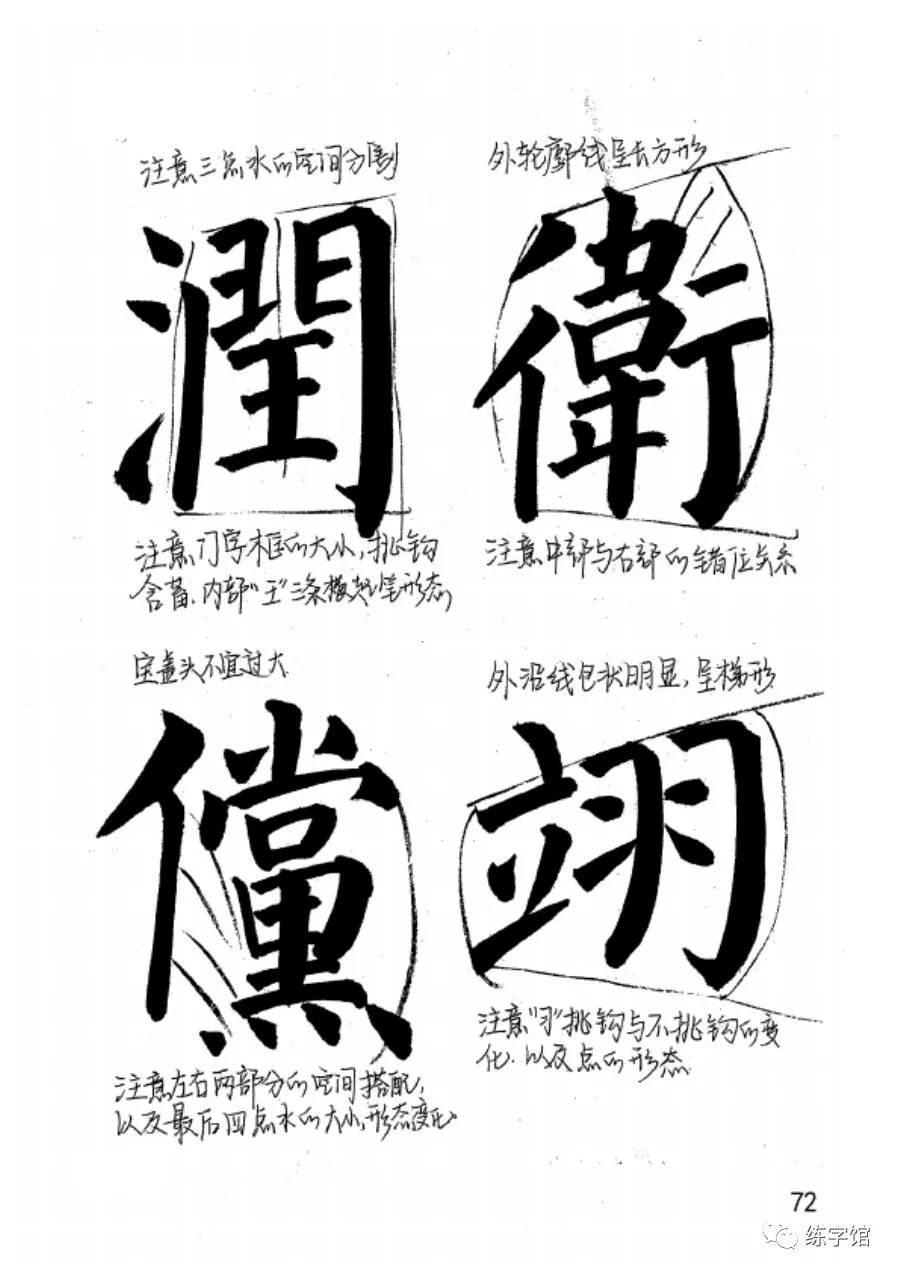 注意三点水的空间分割
外轮廓线呈长方形
潤
衛
注意门字框的大小,挑钩
含蓄.内部“王”三条横起笔形态
注意中部与右部的错位关系
宝盖头不宜过大
外沿线包状明显,呈梯形
儻
翊
注意左右两部分的空间搭配,
以及最后四点水的大小,形态变化
注意“羽”挑钩与不挑钩的变
化.以及点的形态
72
练字馆